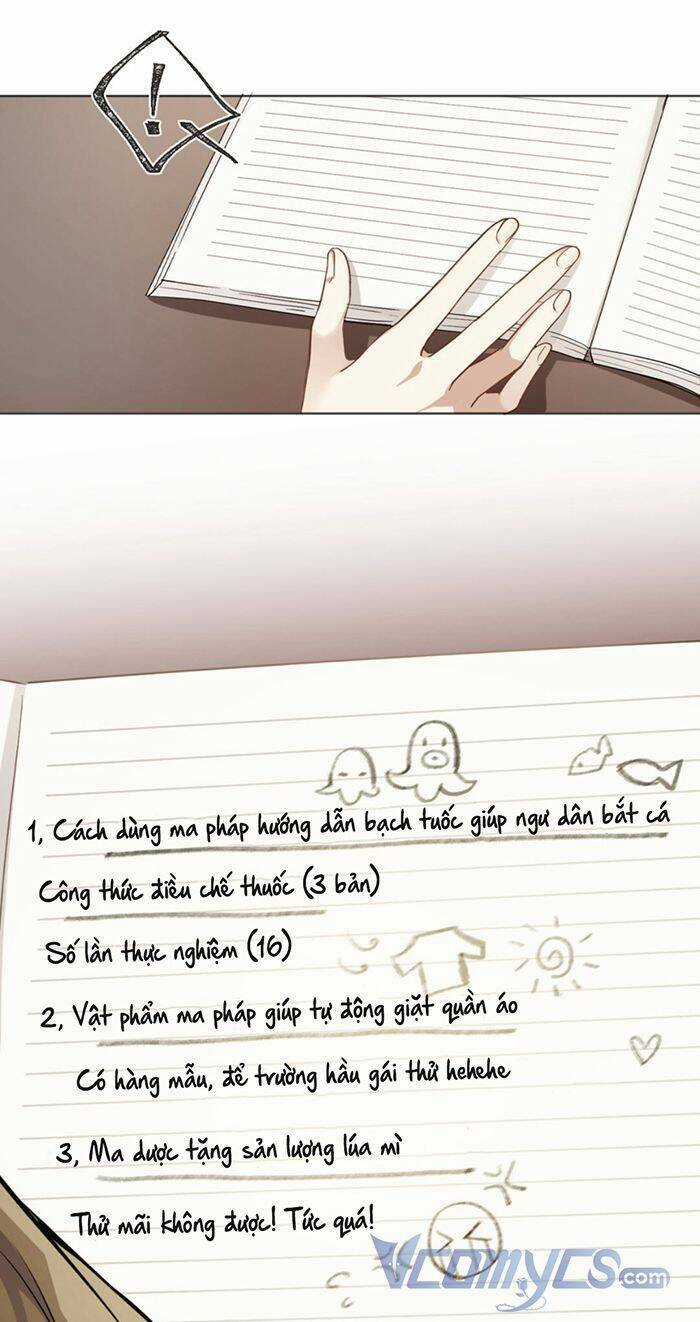 !
1, Cách dùng ma pháp hướng dẫn bạch tuốc giúp ngư dân bắt cá
Công thức điều chế thuốc (3 bản)
Số lần thực nghiệm (16)
2, Vật phẩm ma pháp giúp tự động giặt quần áo
Có hàng mẫu, để trường hầu gái thử hehehe
3, Ma dược tặng sản lượng lúa mì
Thử mãi không được! Tức quá!
VCOMYCS.com